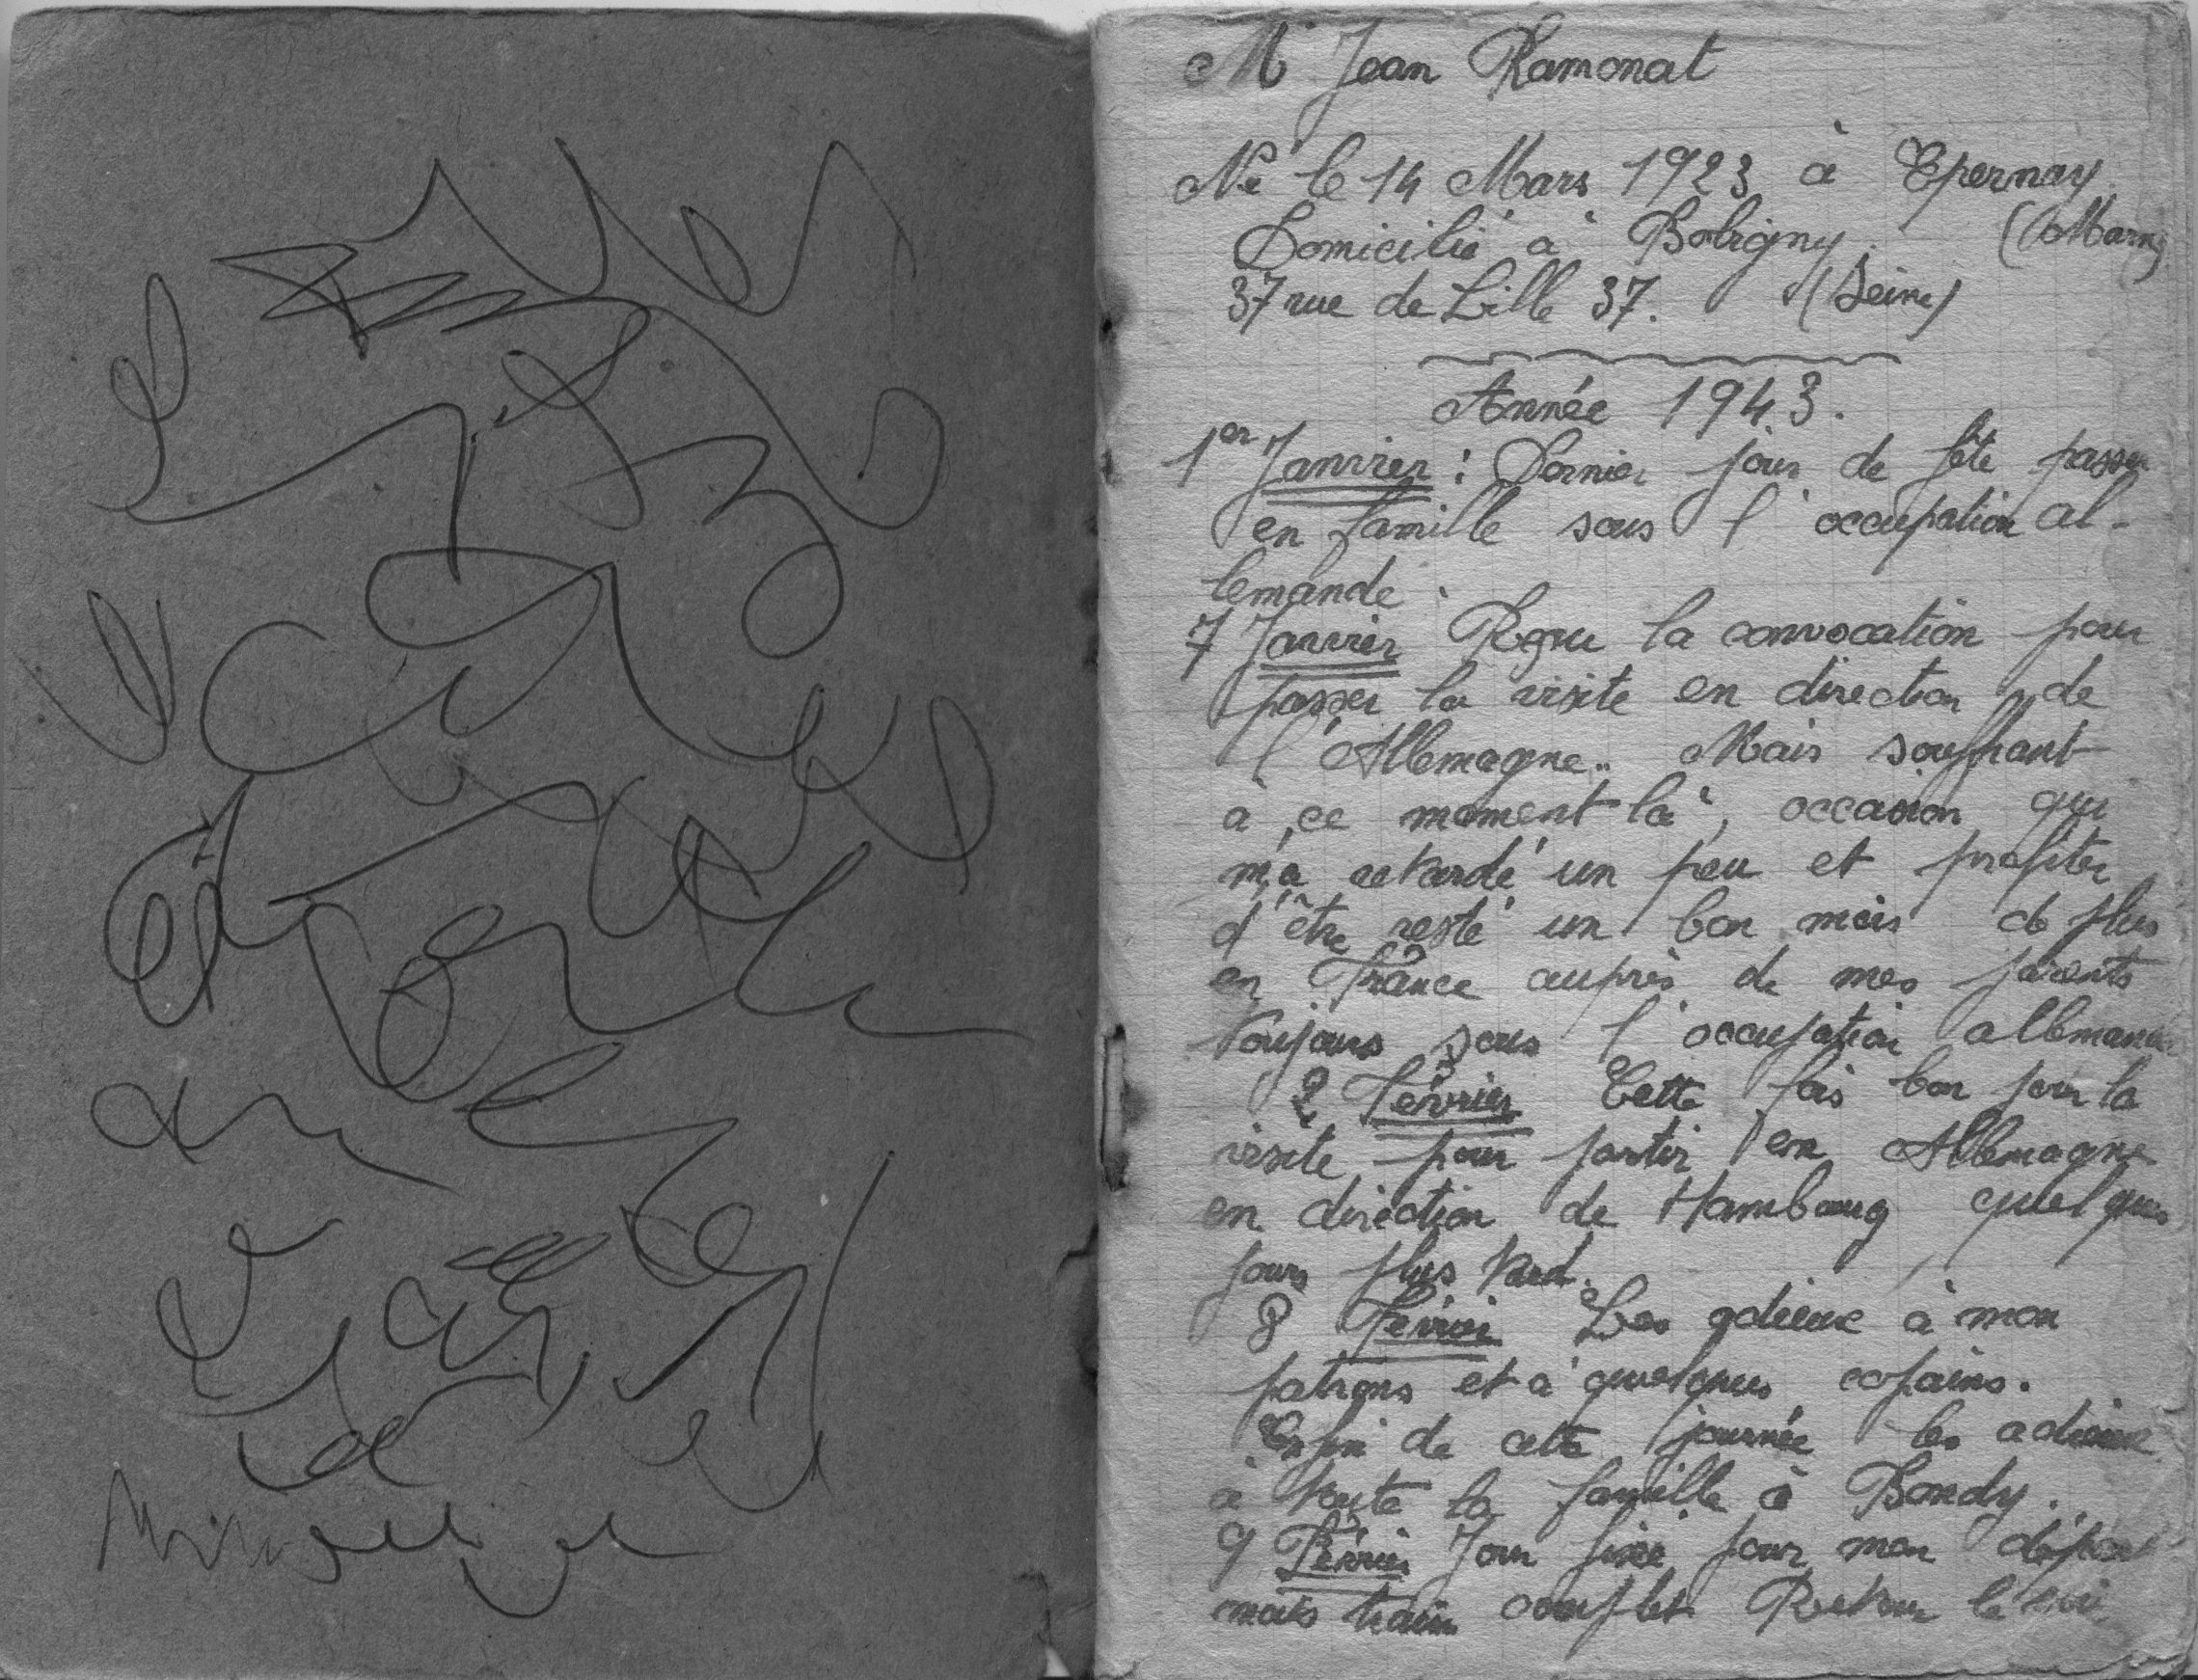 Mr Jean Ramonat
Né le 14 Mars 1923 à Epernay
Domicilié à Bobigny. (Marne)
37 rue de Lille 37. (Seine)
Année 1943.
1er Janvier : Dernier jour de fête passer
en famille sous l'occupation al-
lemande.
7 Janvier Reçu la convocation pour
passer la visite en direction de
l'Allemagne.. Mais souffrant
à ce moment là, occasion qui
m'a retardé un peu et profiter
d'être resté un bon mois de plus
en France auprès de mes parents
toujours sous l'occupation allemande
2 Février Cette fois bon pour la
visite pour partir en Allemagne
en direction de Hambourg quelques
jours plus tard.
8 Février Les adieux à mon
patrons et à quelques copains.
Enfin de cette journée les adieux
à toute la famille à Bondy.
9 Février Jour fixé pour mon départ
mais train complet Retour le soir